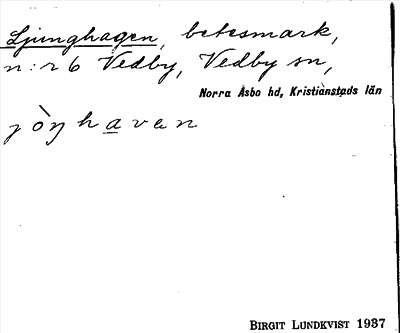 Ljunghagen, betesmark,
n:r 6 Vedby, Vedby sn,
Norra Åsbo hd, Kristianstads län
jòŋhavan
BIRGIT LUNDKVIST 1937